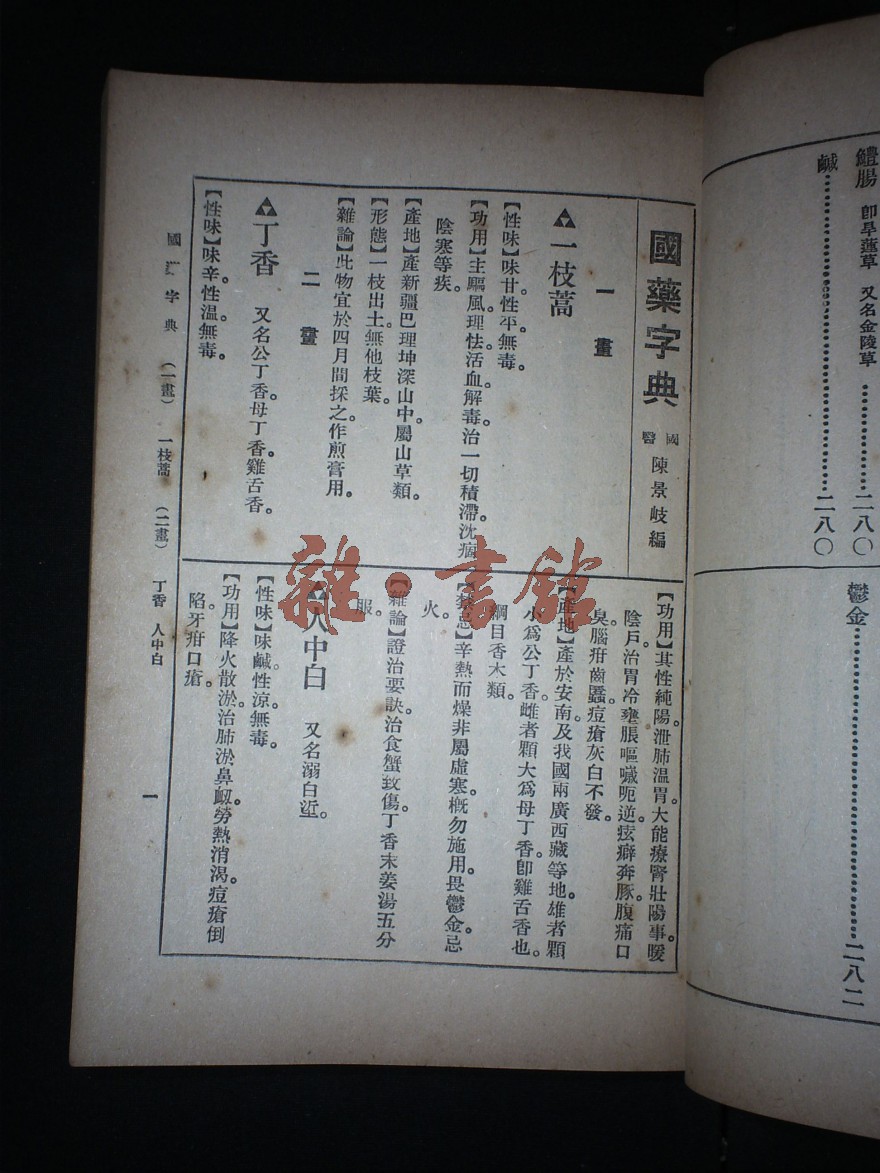 鱧腸 即旱蓮草 又名金陵草 ………………二八〇
鹹………………二八〇
鬱金………………二八二
國藥字典 國醫 陳景岐編
一畫
一枝蒿
【性味】味甘性平。無毒。
【功用】主驅風理怯。活血解毒。治一切積滯。沈痼。
陰寒等疾。
【產地】產新疆巴理坤深山中。屬山草類。
【形態】一枝出土。無他枝葉。
【雜論】此物宜於四月間採之。作煎膏用。
二畫
丁香 又名公丁香。母丁香。雞舌香。
【性味】味辛性溫。無毒。
【功用】其性純陽。泄肺溫胃。大能療腎。壯陽事。暖
陰戶。治胃冷壅脹。嘔噦呃逆。痃癖奔豚。腹痛口
臭。腦疳齒䘌。痘瘡灰白不發。
【產地】產於安南及我國兩廣西藏等地。雄者顆
小為公丁香。雌者顆大為母丁香。即雞舌香也。
綱目香木類。
【禁忌】辛熱而燥。非屬虛寒。概勿施用。畏鬱金。忌
火。
【雜論】證治要訣治食蟹致傷。丁香末。姜湯五分
服。
人中白 又名溺白沂。
【性味】味鹹性涼。無毒。
【功用】降火散淤。治肺淤鼻衄。勞熱消渴。痘瘡倒
陷。牙疳口瘡。
國藥字典 (一畫) 一枝蒿 (二畫) 丁香 人中白 一
雜·書館